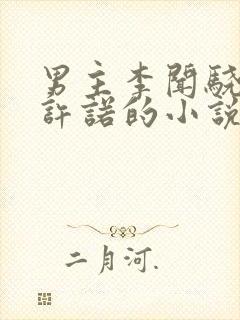 男主李聞驍
許諾的小說
二月河.